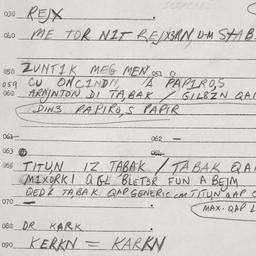 030 REJX
040 ME TOR NIT REJX3RN, U-M STAB
050 ZUNTIK MEG MEN 052
059 CU ONCINDN, A PAPIROS
060 ARAJNTON DI TABAK / GIL8ZN QAP
DIN3 PAPIROS PAPIR
061
062 —
063
064
065 TITUN IZ TABAK / TABAK QAP
MIXORKI Q GL BLET3R FUN A BEJM
QED'S TABAK QAP GENERIC cm TITUN QAP
070 —
(MAX. QAP L
080 DR KARK
090 KERKN = KARKN